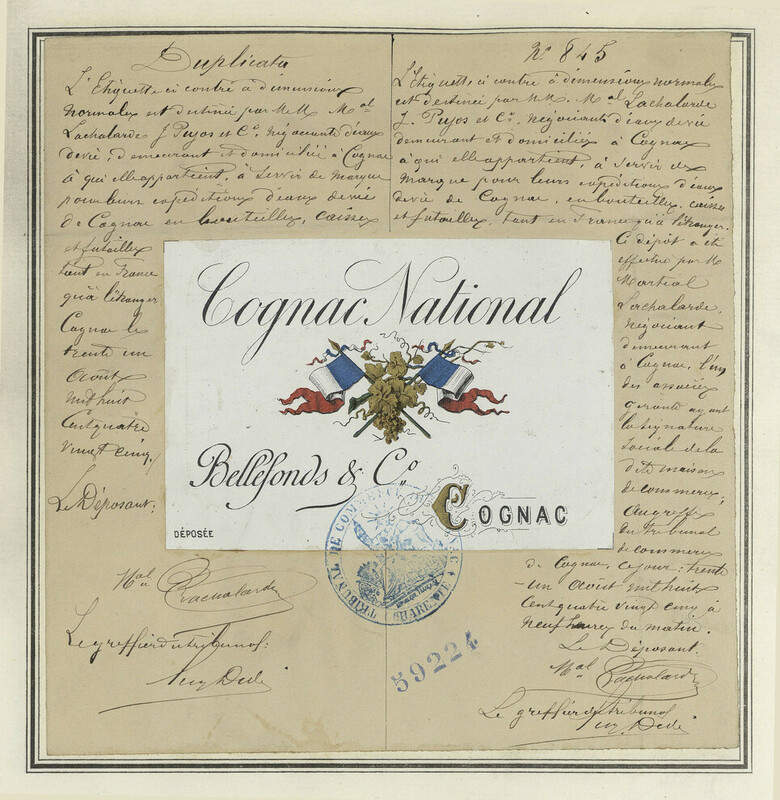 Duplicata
L'Etiquette ci contre à dimensions
normales est destinée par MM. Mal
Lachalarde J. Pujos et Co. Négociants d'eaux
de vie, demeurant et domiciliés à Cognac
à qui elle appartient, à servir de marque
pour leurs expéditions d'eaux de vie
de Cognac en bouteilles, caisses
et futailles
tant en France
qu'à l'étranger
Cognac le
trente un
Août
mil huit
Cent quatre
vingt cinq.
Le Déposant:
Mal Lachalarde
Le greffier du tribunal:
No 845
L'Etiquette ci contre à dimensions normales
est destinée par MM. Mal Lachalarde
J. Pujos et Co. Négociants d'eaux de vie
demeurant et domiciliés à Cognac
à qui elle appartient, à servir de
marque pour leurs expéditions d'eaux
de vie de Cognac, en bouteilles, caisses
et futailles, tant en France qu'à l'étranger.
Ce dépôt a été
effectué par M
Martial
Lachalarde,
négociant
demeurant
à Cognac, l'un
des associés
gérants ayant
la signature
sociale de la
dite maison
de commerce,
au greffe
du tribunal
de commerce
de Cognac, ce jour: trente
-un Août mil huit
Cent quatre vingt cinq à
neuf heures du matin.
Le Déposant:
Mal Lachalarde
Le greffier du tribunal
Cognac National
Bellefonds & Co
COGNAC
DÉPOSÉE
TRIBUNAL DE COMMERCE
59224